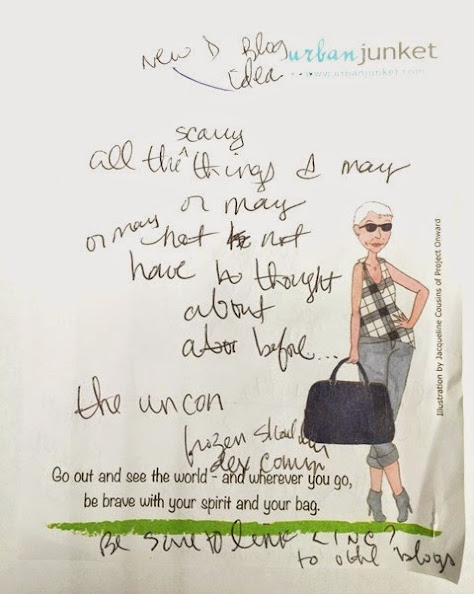 New D Blog
idea
urbanjunket
www.urbanjunket.com
scary
all the ^ things I may
or may
or may not not
have to thought
about
before...
the uncon
frozen shoulder
dex comp
Illustration by Jacqueline Cousins of Project Onward
Go out and see the world - and wherever you go,
be brave with your spirit and your bag.
Be sure to link LINC?
to other blogs